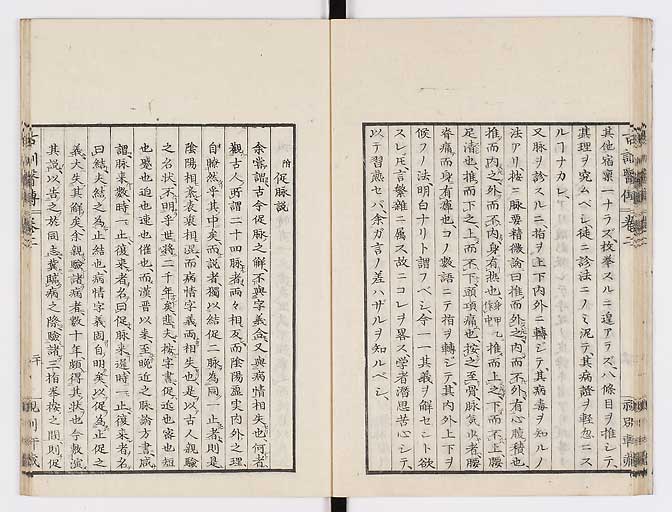 其他宿稟一ナラズ枚挙スルニ遑アラズ八條目ヲ推シテ
其理ヲ究ムベシ徒ニ診法ニノミ泥テ其病證ヲ軽忽ニス
ルヿナカレ
又脉ヲ診スルニ指ヲ上下内外ニ轉シテ其病毒ヲ知ルノ
法アリ按ニ脉要精微論曰推而外之内而不外有心腹積也
推而内之外而不内身有熱也推而上之下而不上腰
足清也推而下之上而不下頭項痛也按之至骨脉氣少者腰
脊痛而身有痺也コノ數語ニテ指ヲ轉シテ其内外上下ヲ
候フノ法明白ナリト謂フベシ今一一其義ヲ解セント欲
スレ𪜈言繁雑ニ属ス故ニコレヲ畧ス学者潜思苦心シテ
以テ習熟セバ余ガ言ノ差ハザルヲ知ルベシ
附 促脉説
余嘗謂古今促脉之解不與字義合又與病情相失也何者
觀古人所謂二十四脉者両々相反而陰陽虚実内外之理
自瞭然乎其中矣而説者獨以結促二脉為同一止者則是
陰陽相紊表裏相混而病情字義両相失也是以古人親驗
之名状不明乎世将二千年矣悲夫按字書促近也密也短
也蹙也迫也速也催也而漢晋以来至晩近之脉論方書咸
謂脉来數時一止復来者名曰促脉来遲時一止復来者名
曰結夫結之為止結也病情字義固自明矣以促為止促之
義大失其解矣余親驗諸病者數十年頗得其状也今敷演
其説以告之於同志冀臨病之際驗諸三指挙按之間則促